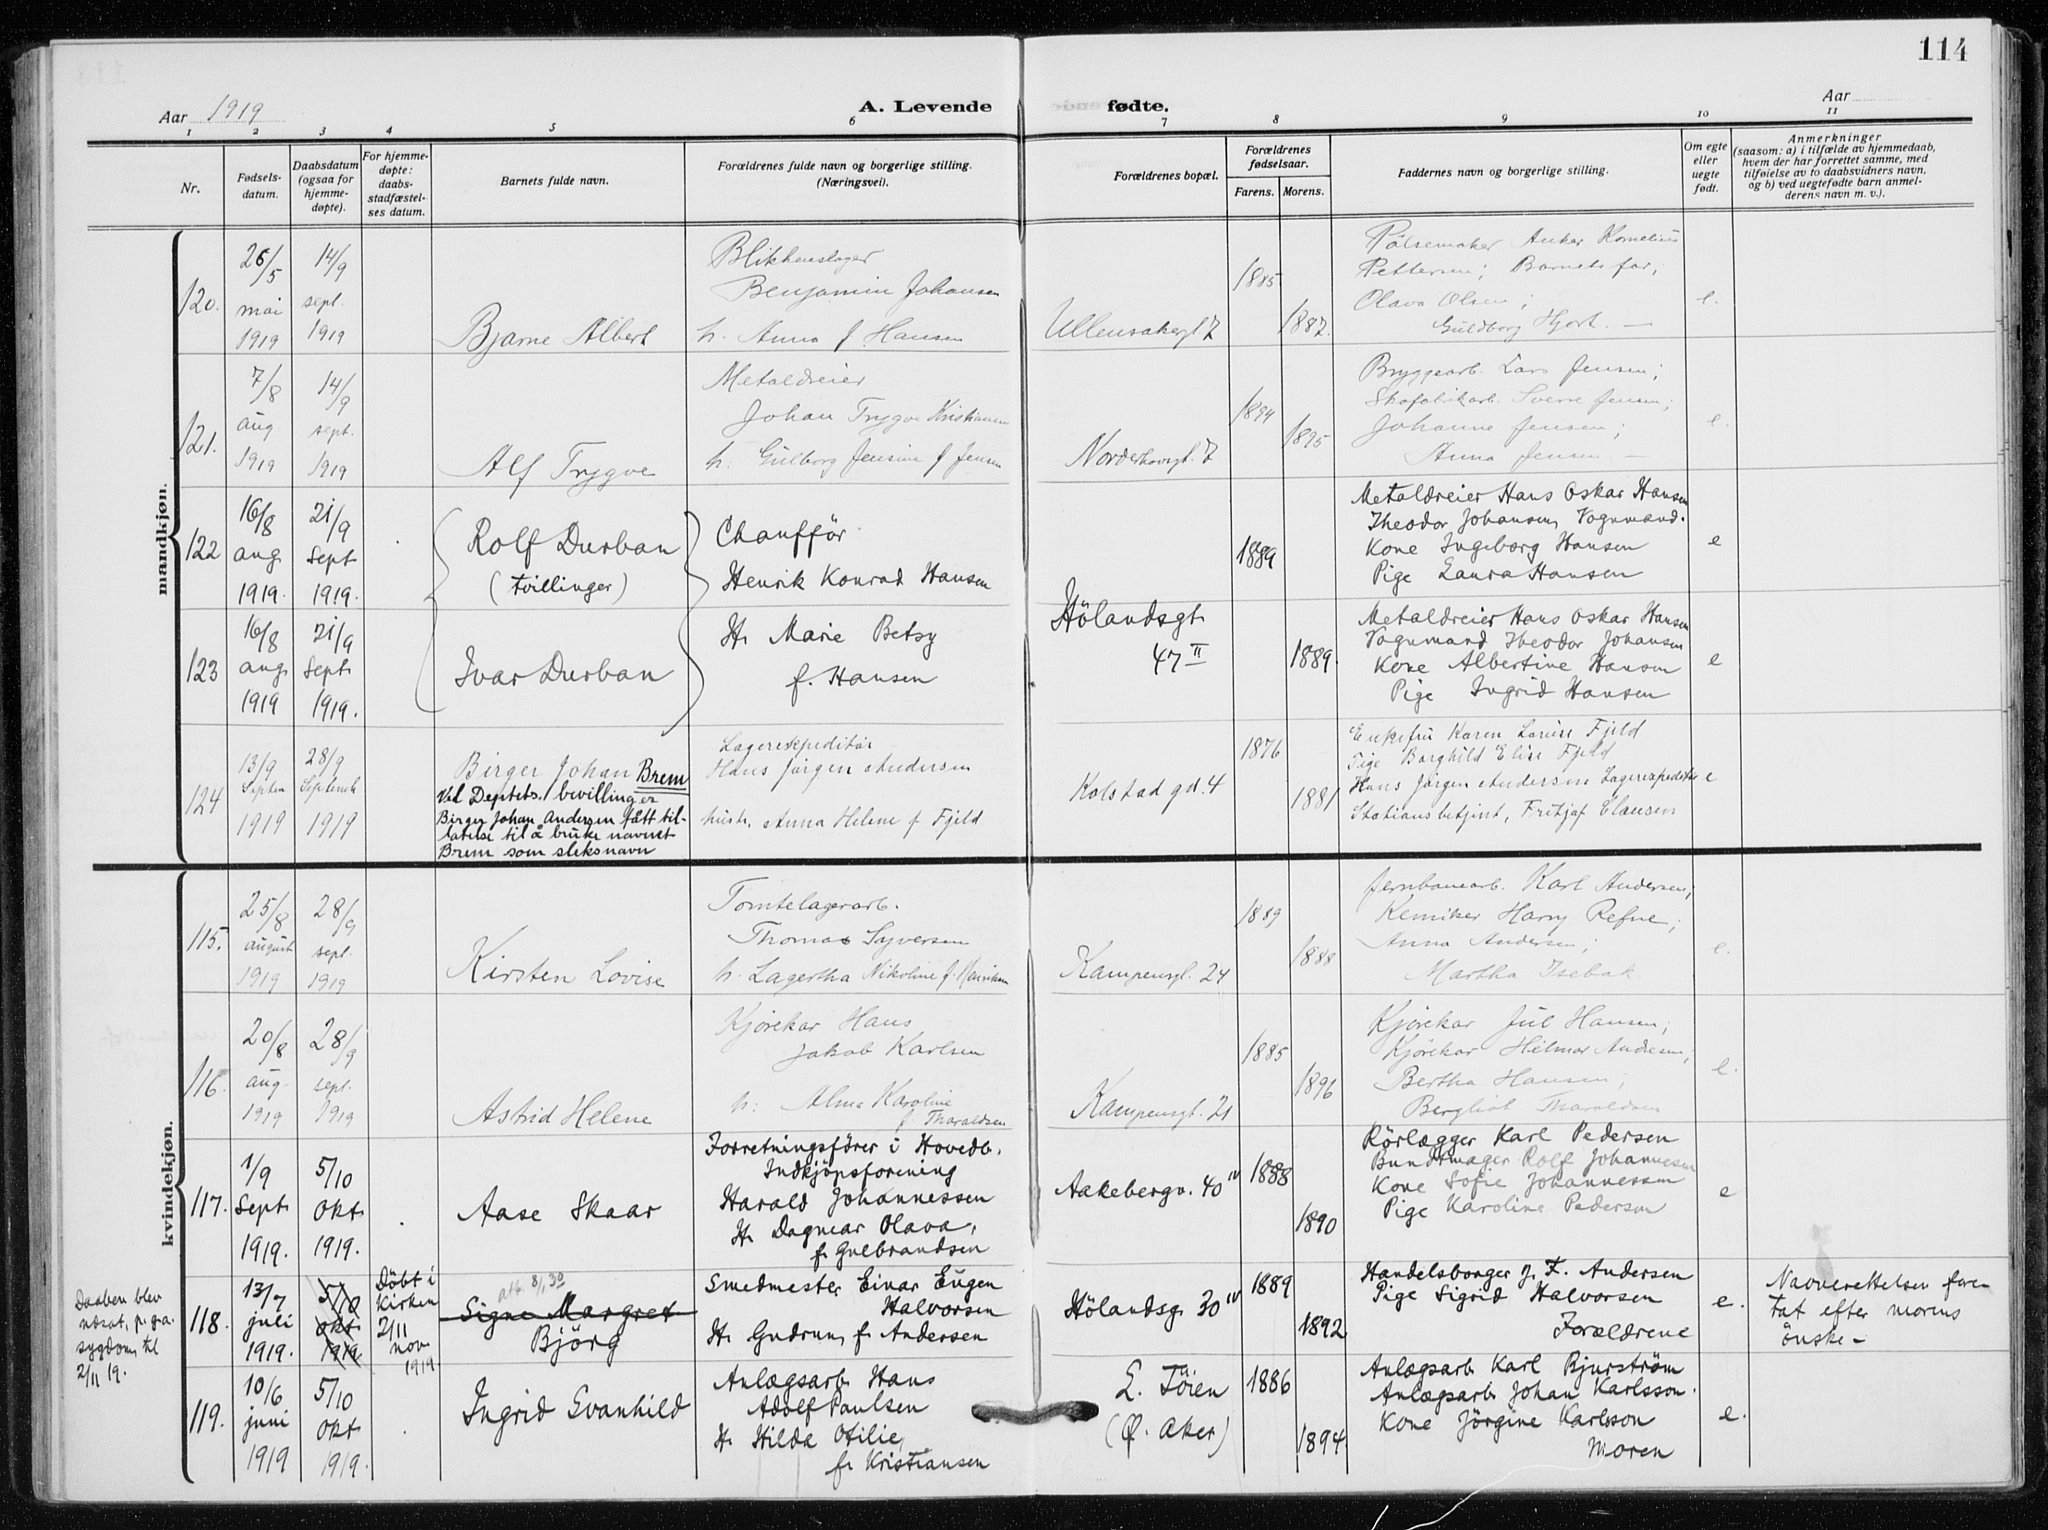 114
Aar 1919
A. Levende fødte.
Aar
1 2 3 4 5 6 7 8 9 10 11
Nr.
Fødsels-
datum.
Daabsdatum
(ogsaa for
hjemme-
døpte).
For hjemme-
døpte:
daabs-
stadfæstel-
ses datum.
Barnets fulde navn.
Forældrenes fulde navn og borgerlige stilling.
(Næringsvei).
Forældrenes bopæl.
Forældrenes
fødselsaar.
Farens. Morens.
Faddernes navn og borgerlige stilling.
Om egte
eller
uegte
født.
Anmerkninger
(saasom: a) i tilfælde av hjemmedaab,
hvem der har forrettet samme, med
tilføielse av to daabsvidners navn,
og b) ved uegtefødte barn anmel-
derens navn m. v.).
mandkjøn.
120.
26/5
mai
1919
14/9
sept.
1919
Bjarne Albert
Blikkenslager
Benjamin Johansen
h. Anna f Hansen
Ullensakergt 7
1885
1887.
Pölsemaker Anker Kornelius
Pettersen; Barnets far;
Olava Olsen;
Guldborg Hjort. —
e.
121.
7/8
aug
1919
14/9
sept.
1919
Alf Trygve
Metaldreier
Johan Trygve Kristiansen
h. Gulborg Jensine f Jensen
Norderhovsgt. 7
1894
1895
Bryggearb. Lars Jensen;
Skofabrikarb. Sverre Jensen;
Johanne Jensen;
Anna Jensen. —
e.
122
16/8
aug
1919.
21/9
Sept
1919.
Rolf Durban
(tvillinger)
Chaufför
Henrik Konrad Hansen
1889
Metaldreier Hans Oskar Hansen
Theodor Johansen, Vognmand.
Kone Ingeborg Hansen
Pige Laura Hansen
e
123
16/8
aug
1919
21/9
Sept
1919.
Ivar Durban
H. Marie Betsy
f. Hansen
Hölandsgt
47 II
1889.
Metaldreier Hans Oskar Hansen
Vognmand Theodor Johansen
Kone Albertine Hansen
Pige Ingrid Hansen
e
124
13/9
Septem
1919
28/9
Septemb
1919
Birger Johan Brem
Ved Deptets. bevilling er
Birger Johan Andersen fått til-
latelse til å bruke navnet
Brem som sleksnavn
Lagerexpeditör
Hans Jörgen Andersen
hustr. Anna Helene f Fjeld
Kolstad gd. 4
1876
1881
Enkefru Karen Lovise Fjeld
Pige Borghild Elise Fjeld
Hans Jörgen Andersen Lagerexpeditör
Stationsbetjent, Fritjof Clausen
e
kvindekjøn.
115.
25/8
august
1919
28/9
sept.
1919
Kirsten Lovise
Tomtelagerarb.
Thomas Syversen
h. Lagertha Nikoline f. Henriksen
Kampensgt. 24
1889
1888
Jernbanearb. Karl Andersen;
Kemiker Harry Refne;
Anna Andersen;
Martha Isebak
e.
116.
20/8
aug.
1919
28/9
sept.
1919
Astrid Helene
Kjörekar Hans
Jakob Karlsen
h: Alma Karoline
f. Tharaldsen
Kampensgt. 21
1885
1896
Kjörekar Jul Hansen;
Kjörekar Hilmar Andersen;
Bertha Hansen;
Bergliot Tharaldsen
e.
117.
1/9
Sept
1919.
5/10
Okt
1919.
Aase Skaar
Forretningsförer i Hovedb.
Indkjöpsforening
Harald Johannessen
H. Dagmar Olava,
f. Gulbrandsen
Aakebergv. 40 IV
1888
1890
Rörlægger Karl Pedersen
Bundtmager Rolf Johannessen
Kone Sofie Johannessen
Pige Karoline Pedersen
e
Daaben blev
utsat, p. gr. a.
sygdom, til
2/11 19.
118.
13/7
juli
1919.
5/10
okt
1919.
Döbt i
Kirken
2/11
nov
1919
att. 8/1.30
Signe Margret
Björg
Smedmester Einar Eugen
Halvorsen
H. Gudrun, f. Andersen
Hölandsg 30 IV
1889
1892
Handelsborger J. F. Andersen
Pige Sigrid Halvorsen
Forældrene
e.
Navnerettelsen fore-
tat efter morens
önske —
119.
10/6
juni
1919
5/10
Okt
1919.
Ingrid Svanhild
Anlægsarb. Hans
Adolf Paulsen
H. Hilda Otilie,
f. Kristiansen
L. Töien
(Ø. Aker)
1886
1894
Anlægsarb Karl Bjurström
Anlægsarb Johan Karlsson.
Kone Jörgine Karlsson
Moren
e.